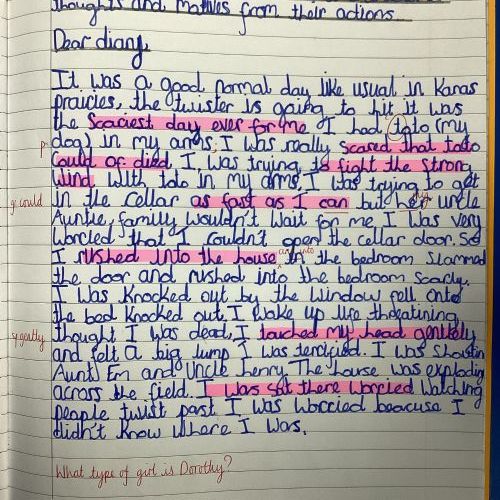 thoughts and motives from their actions.
Dear diary,
It was a good normal day like usual in Kanas
praicies, the twister is going to hit it was
the scaciest day ever for me I had toto (my
p
dog) in my arms, I was really scared that toto
could of died, I was trying to fight the strong
wind with toto in my arms, I was trying to get
g could
in the cellar as fast as I can but her uncle
Auntie, family wouldn't wait for me I was very
worcied that I couldn't open the cellar door. So
I rushed into the house in the bedroom slammed
the door and rushed into the bedroom scarly.
I was knocked out by the window fell onto
the bed knocked out, I wake up life threatining
thought I was dead, I touched my head gentkely
sp gently
and felt a big lump I was terrified. I was shoutin
Aunt Em and Uncle henry The house was exploding
across the field. I was sat there worried watching
people twist past I was worcied beacuse I
didn't know where I was.
What type of girl is Dorothy?